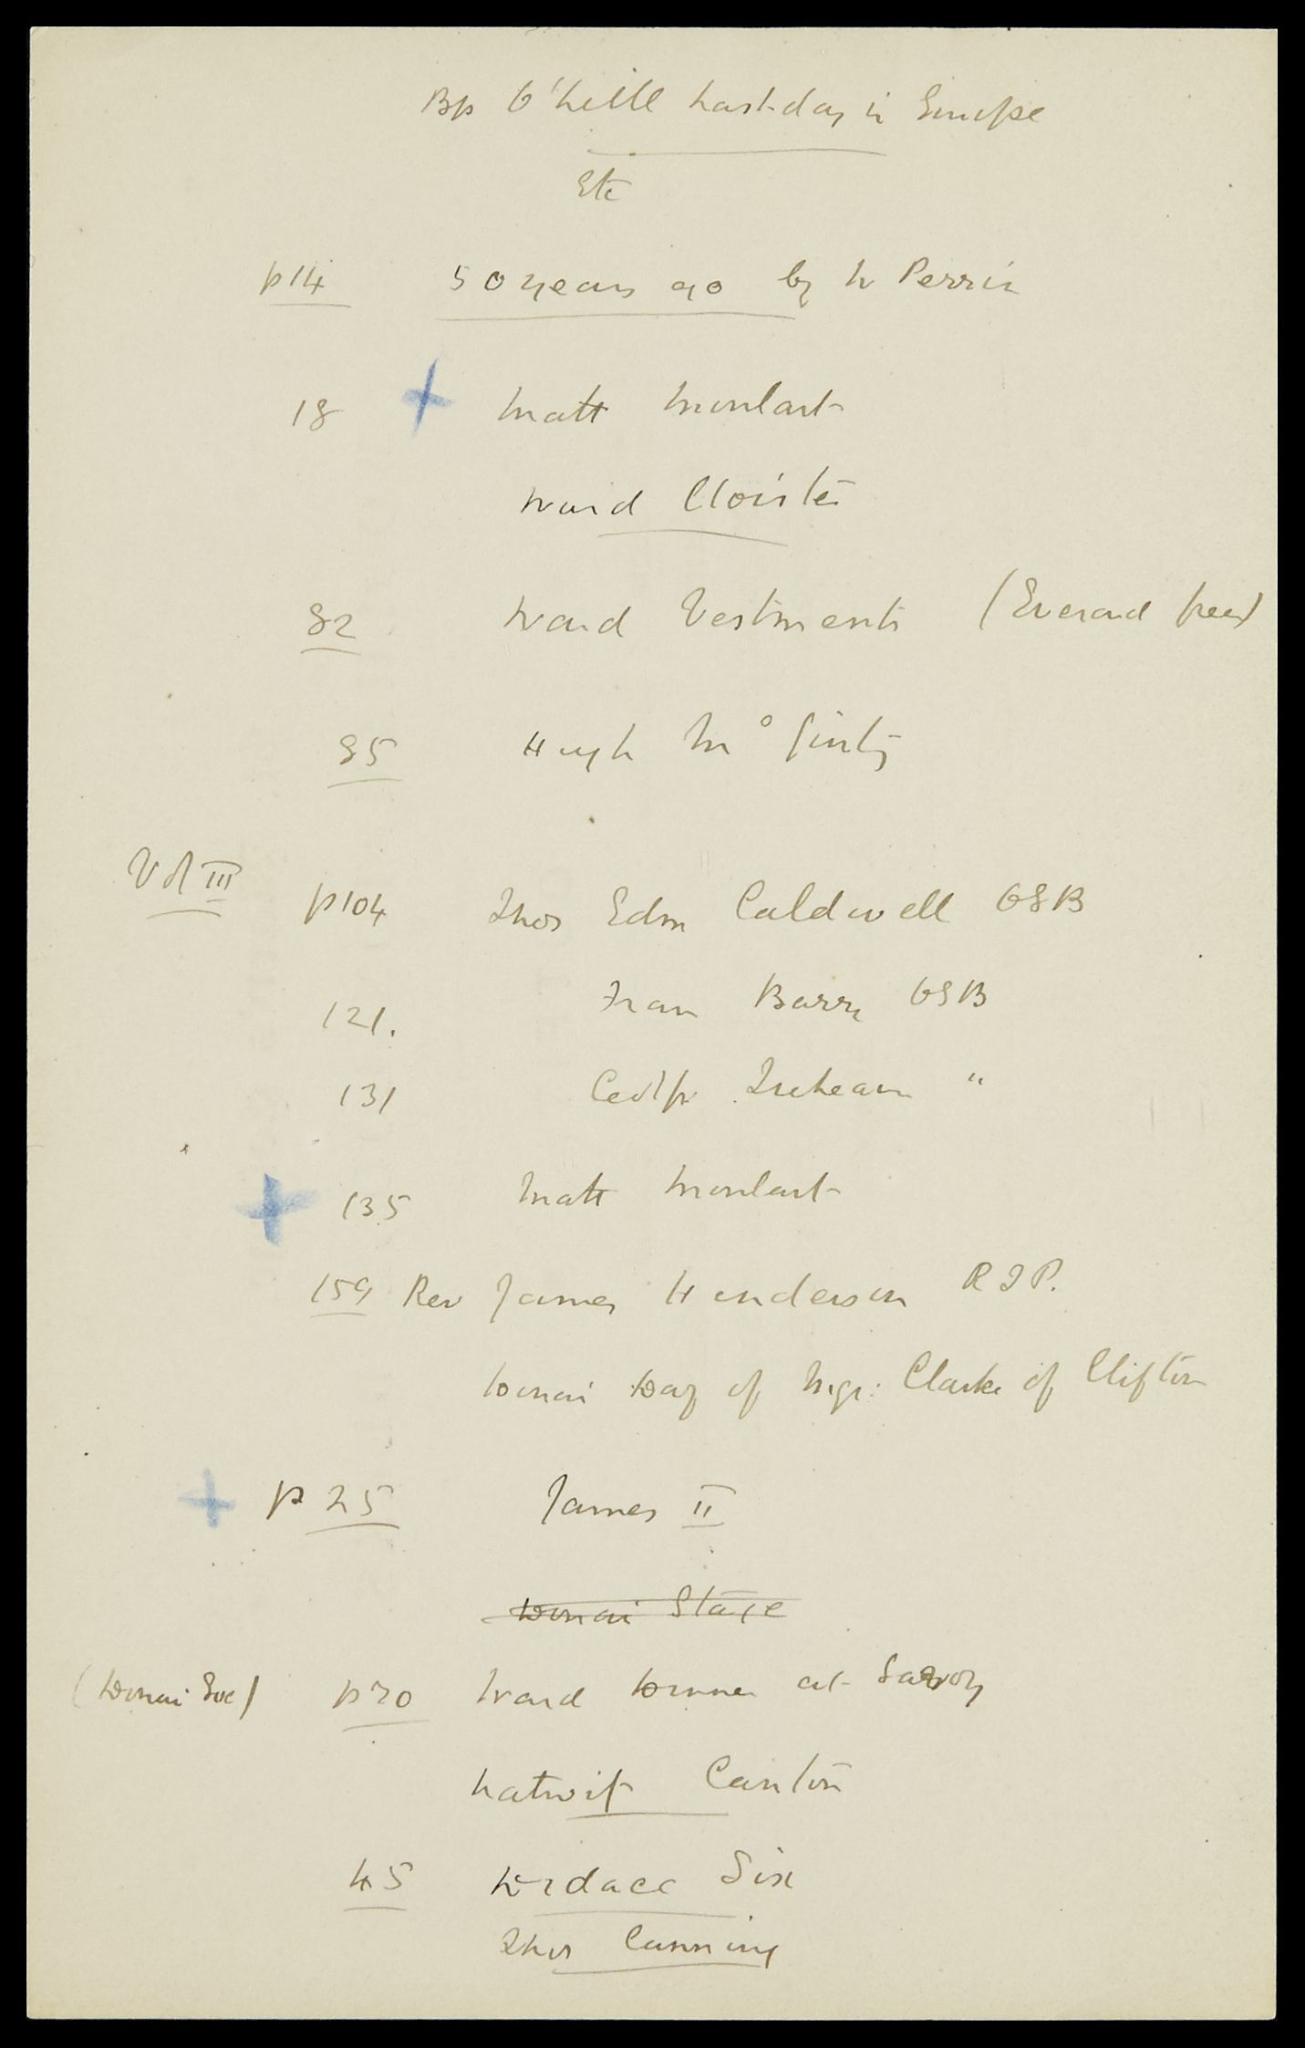 Bp O'Neill Last day in Europe
Etc
p14 50 years ago by W Perrin
18 + Matt Montart
Ward Cloister
82 Ward Vestments (Everard
85 Hugh McGinty
Vol III p104 Thos Edm Caldwell OSB
121. Fran Barry OSB
131 "
+ 135 Matt Montart
159 Rev James Henderson RIP.
Douai Day of Mgr: Clarke of Clifton
+ p 25 James II
Douai Stage
(Douai Soc) p30 Ward Dinner at Savoy
Canton
45 Six
Thos Cunning